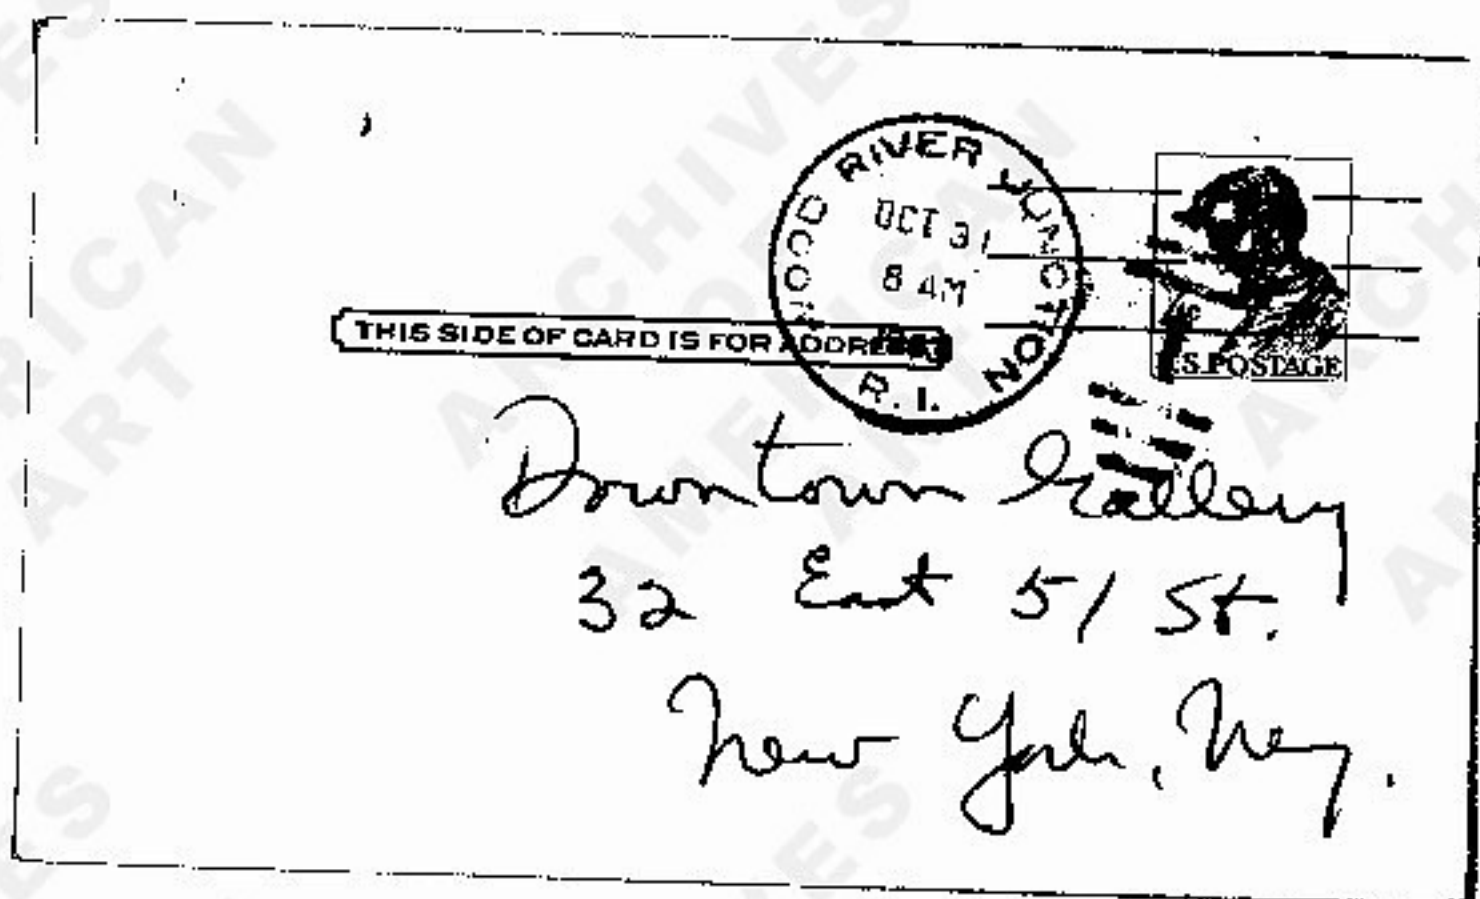 WOOD RIVER JUNCTION
OCT 31
8 AM
R. I.
U.S. POSTAGE
THIS SIDE OF CARD IS FOR ADDRESS
Downtown Gallery
32 East 51 St.
New York, Ny.
ARCHIVES
OF
AMERICAN
ART